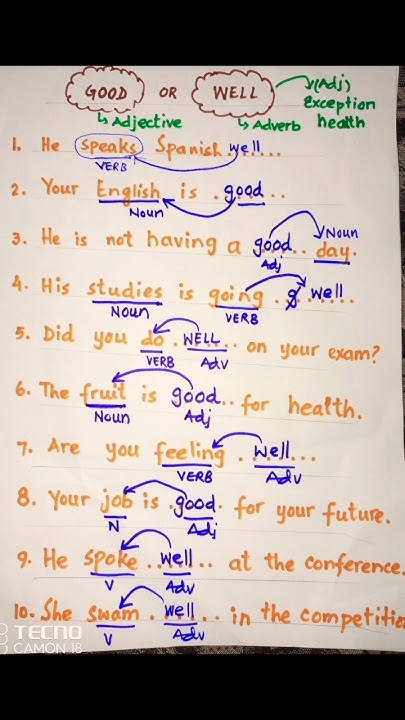 GOOD OR WELL
(Adj) Exception health
Adjective Adverb
1. He speaks Spanish well
VERB
2. Your English is good
Noun
3. He is not having a good day.
Adj Noun
4. His studies is going well
Noun VERB
5. Did you do WELL on your exam?
VERB Adv
6. The fruit is good for health.
Noun Adj
7. Are you feeling well
VERB Adv
8. Your job is good for your future.
N Adj
9. He spoke well at the conference.
V Adv
10. She swam well in the competitio
V Adv
TECNO
CAMON 18